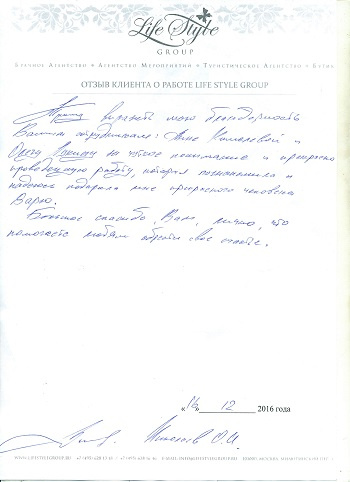 Life Style
GROUP
Брачное Агентство • Агентство Мероприятий • Туристическое Агентство • Бутик
ОТЗЫВ КЛИЕНТА О РАБОТЕ LIFE STYLE GROUP
выразить мою благодарность
Вашим сотрудникам: и
Олегу за чуткое понимание и прекрасно
проведенную работу, которая познакомила и
надеюсь подарила мне прекрасного человека
Варю.
Большое спасибо, Вам, лично, что
помогаете людям обрести свое счастье.
«16» 12 2016 года
О.И.